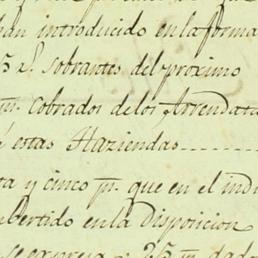 han introducido en la forma
S. sobrantes del proximo
p.^s cobrados de los Arrendata
estas Haziendas
ta y cinco p.^s que en el indi
ubertido en la Disposicion
se expresa